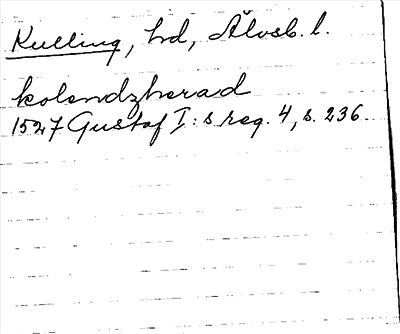 Kulling, hd, Älvsb. l.
kolendzherad
1527 Gustaf I:s reg. 4, s. 236.